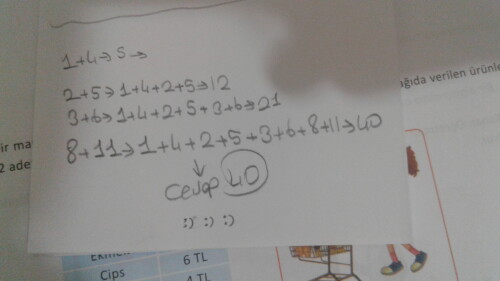 1+4→5→
2+5→1+4+2+5→12
3+6→1+4+2+5+3+6→21
8+11→1+4+2+5+3+6+8+11→40
↓
Cevap 40
:) :) :)
ağıda verilen ürünle
ir ma
2 ade
Ekmek
6 TL
Cips
4 TL